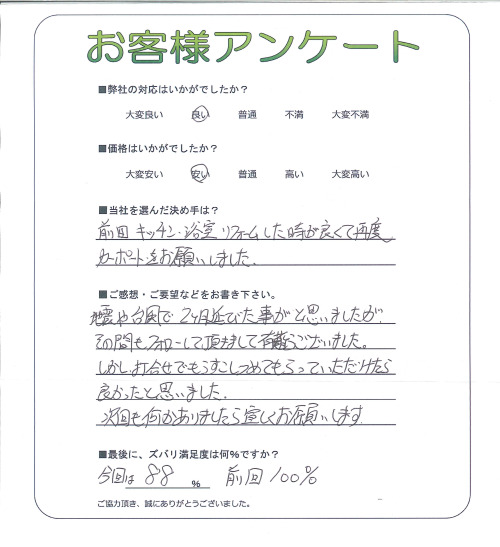 お客様アンケート
■弊社の対応はいかがでしたか？
大変良い 良い 普通 不満 大変不満
■価格はいかがでしたか？
大変安い 安い 普通 高い 大変高い
■当社を選んだ決め手は？
前回 キッチン・浴室 リフォームした時が良くて再度
カーポートをお願いしました.
■ご感想・ご要望などをお書き下さい。
地震や台風で 2ヶ月延びた事がと思いましたが.
その間もフォローして頂きまして有難うございました。
しかし打合せでもう少しつめてもらっていただけたら
良かったと思いました.
次回も何かありましたら宜しくお願いします
■最後に、ズバリ満足度は何%ですか？
今回は 88 % 前回 100%
ご協力頂き、誠にありがとうございました。